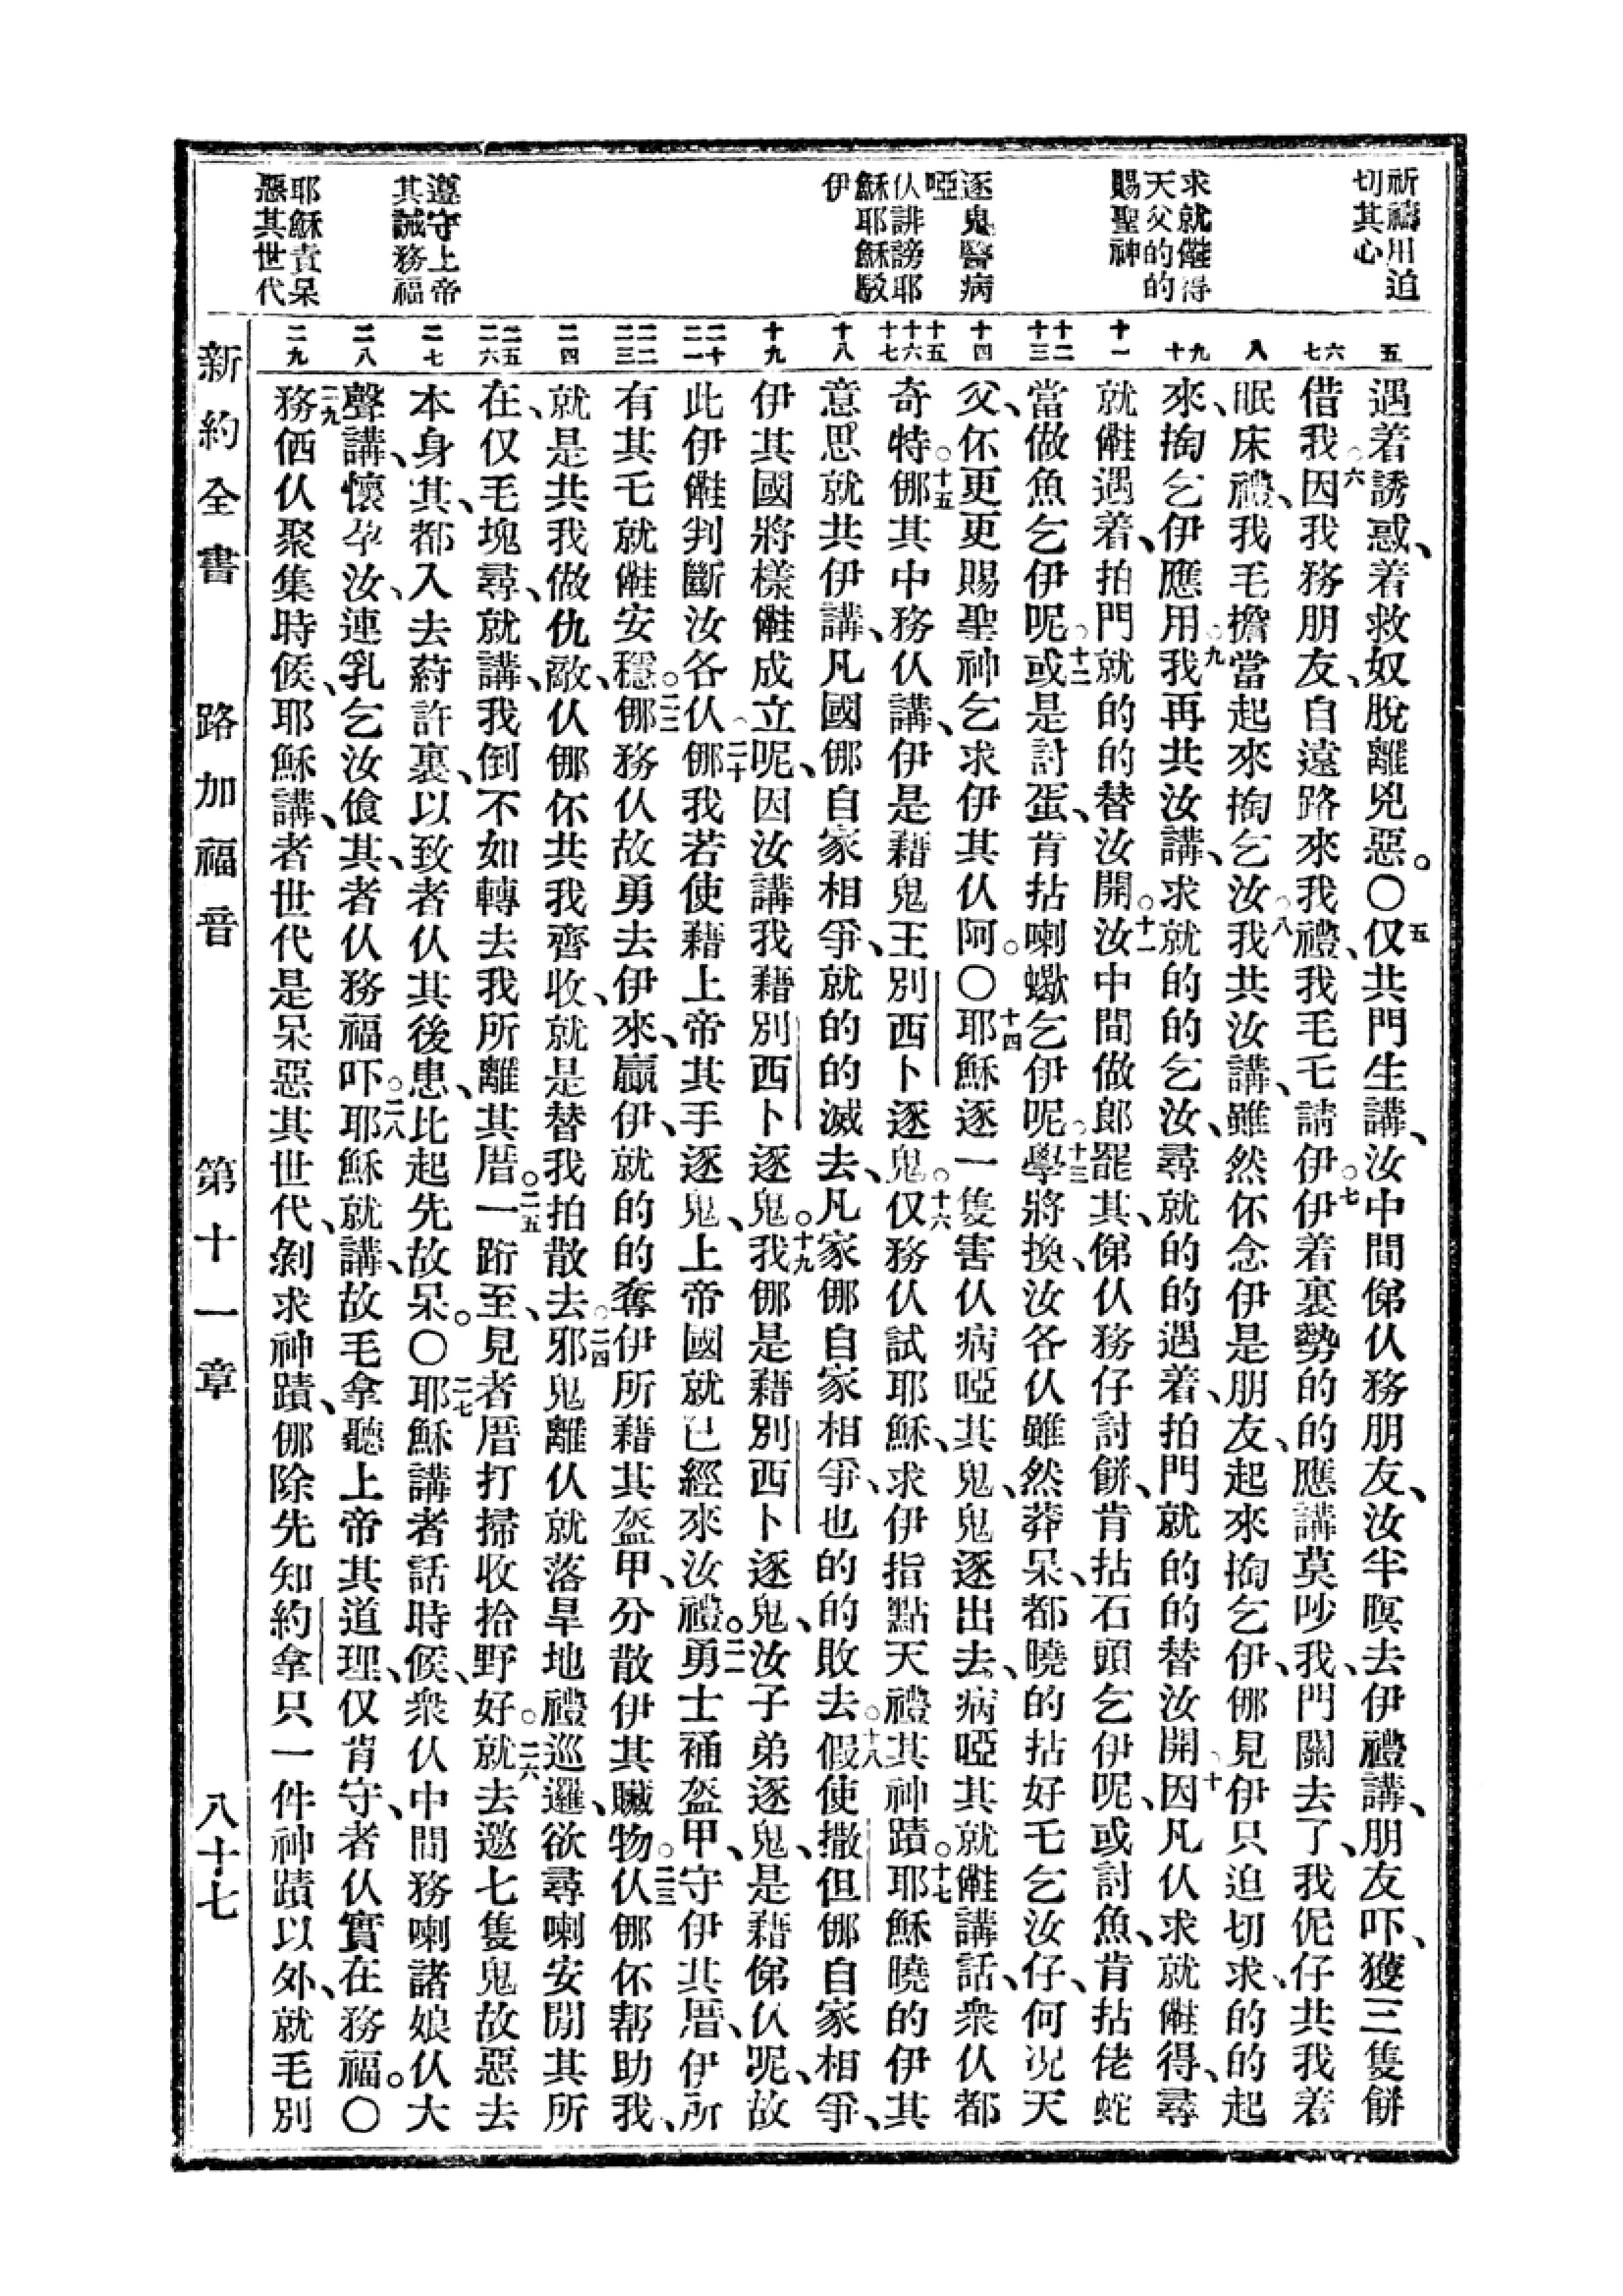 祈禱用迫
切其心
求就𠆧得
天父的的
賜聖神
逐鬼醫病
啞
仈誹謗耶
穌耶穌駁
伊
遵守上帝
其誡務福
耶穌責呆
惡其世代
五
六 七
八
九 十
十一
十二 十三
十四
十五 十六 十七
十八
十九
二十 二一
二二 二三
二四
二五 二六
二七
二八
二九
遇着誘惑、着救奴脫離兇惡。〇五仅共門生講、汝中間俤仈務朋友、汝半暝去伊禮講、朋友吓、獲三隻餅
借我。六因我務朋友、自遠路來我禮、我毛乇請伊。七伊着裏勢的的應講莫吵我、門關去了、我伲仔共我着
眠床禮、我毛擔當起來掏乞汝。八我共汝講、雖然伓念伊是朋友、起來掏乞伊、㑚見伊只迫切求、的的起
來、掏乞伊應用。九我再共汝講、求就的的乞汝、尋就的的遇着、拍門就的的替汝開。十因凡仈求就𠆧得、尋
就𠆧遇着、拍門就的的替汝開。十一汝中間做郎罷其、俤仈務仔討餅、肯拈石頭乞伊呢、或討魚、肯拈佬蛇
當做魚乞伊呢。十二或是討蛋、肯拈喇蠍乞伊呢。十三學將換、汝各仈雖然莽呆、都曉的拈好乇乞汝仔、何况天
父、伓更更賜聖神乞求伊其仈阿。〇十四耶穌逐一隻害仈病啞其鬼、鬼逐出去、病啞其就𠆧講話、衆仈都
奇特。十五㑚其中務仈講、伊是藉鬼王別西卜逐鬼。十六仅務仈試耶穌、求伊指點天禮其神蹟。十七耶穌曉的伊其
意思就共伊講、凡國㑚自家相爭、就的的滅去、凡家㑚自家相爭、也的的敗去。十八假使撒但㑚自家相爭、
伊其國將樣𠆧成立呢、因汝講我藉別西卜逐鬼。十九我㑚是藉別西卜逐鬼、汝子弟逐鬼、是藉俤仈呢、故
此伊𠆧判斷汝各仈。二十㑚我若使藉上帝其手逐鬼、上帝國就已經來汝禮。二一勇士裲盔甲、守伊其厝、伊所
有其乇就𠆧安穩。二二㑚務仈故勇去伊來、贏伊、就的的奪伊所藉其盔甲、分散伊其贜物。二三仈㑚伓帮助我、
就是共我做仇敵、仈㑚伓共我齊收、就是替我拍散去。二四邪鬼離仈就落旱地禮巡邏、欲尋喇安閒其所
在、仅毛塊尋、就講、我倒不如轉去我所離其厝。二五一跻至、見者厝打掃收拾野好。二六就去邀七隻鬼故惡去
本身其、都入去蒞許裏、以致者仈其後患、比起先故呆。〇二七耶穌講者話時候、衆仈中間務喇諸娘仈大
聲講、懷孕汝、連乳乞汝飡其、者仈務福吓。二八耶穌就講、故毛拿聽上帝其道理、仅肯守、者仈實在務福。〇
二九務㑚仈聚集時候、耶穌講、者世代是呆惡其世代、剝求神蹟、㑚除先知約拿只一件神蹟以外、就毛別
新約全書 路加福音 第十一章 八十七